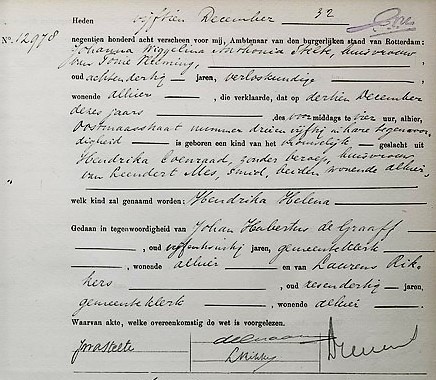 Heden vijftien December 32
No. 12978 negentien honderd acht verscheen voor mij, Ambtenaar van den burgerlijken stand van Rotterdam:
Johanna Wiggelina Anthonia Stelté, huisvrouw
van Tonie Vlieming,
oud achtendertig jaren, verloskundige
wonende alhier, die verklaarde, dat op dertien December
dezes jaars des voormiddags te vier uur, alhier,
Oostmaasstraat nummer drieënvijftig in hare tegenwoor,
digheid is geboren een kind van het vrouwelijke geslacht uit
Hendrika Coenraad, zonder beroep, huisvrouw
van Leendert Mes, smid, beiden wonende alhier,
welk kind zal genaamd worden: Hendrika Helena
Gedaan in tegenwoordigheid van Johan Hubertus de Graaff
, oud vijfenveertig jaren, gemeenteklerk
, wonende alhier en van Laurens Rik-
kers, oud zesendertig jaren,
gemeenteklerk, wonende alhier.
Waarvan akte, welke overeenkomstig de wet is voorgelezen.
deGraaff
LRikkers